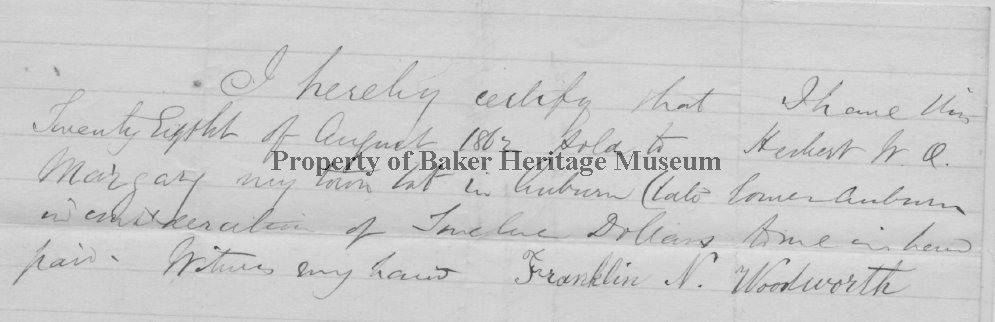 I hereby certify that I have this
Twenty Eight of August 1862 Sold to Herbert W. O.
Property of Baker Heritage Museum
Margary my town lot in Auburn (late lower Auburn
in consideration of Twelve Dollars to me in hand
paid. Witness my hand Franklin N. Woodworth